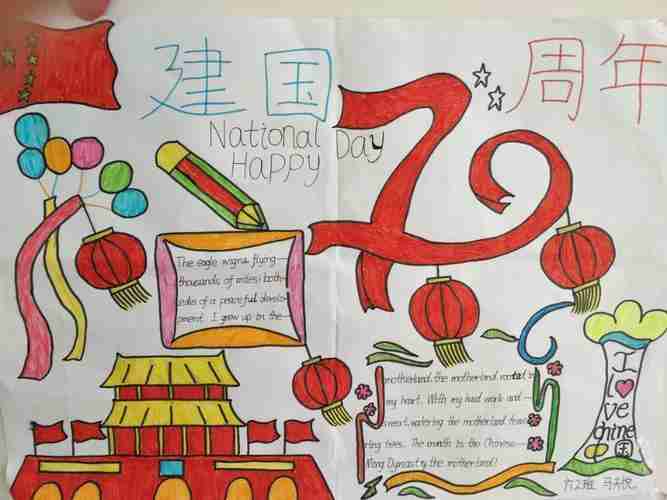 建国70周年
National Day
Happy
The eagle wigns flying
thousands of miles: both
sides of a peaceful develo-
pment. I grew up in the
motherland, the motherland rooted in
my heart. With my hard work and
sweat, watering the motherland
trees. The month is the Chinese
Dynasty the motherland!
I
love
chine
国
六2班 马天悦